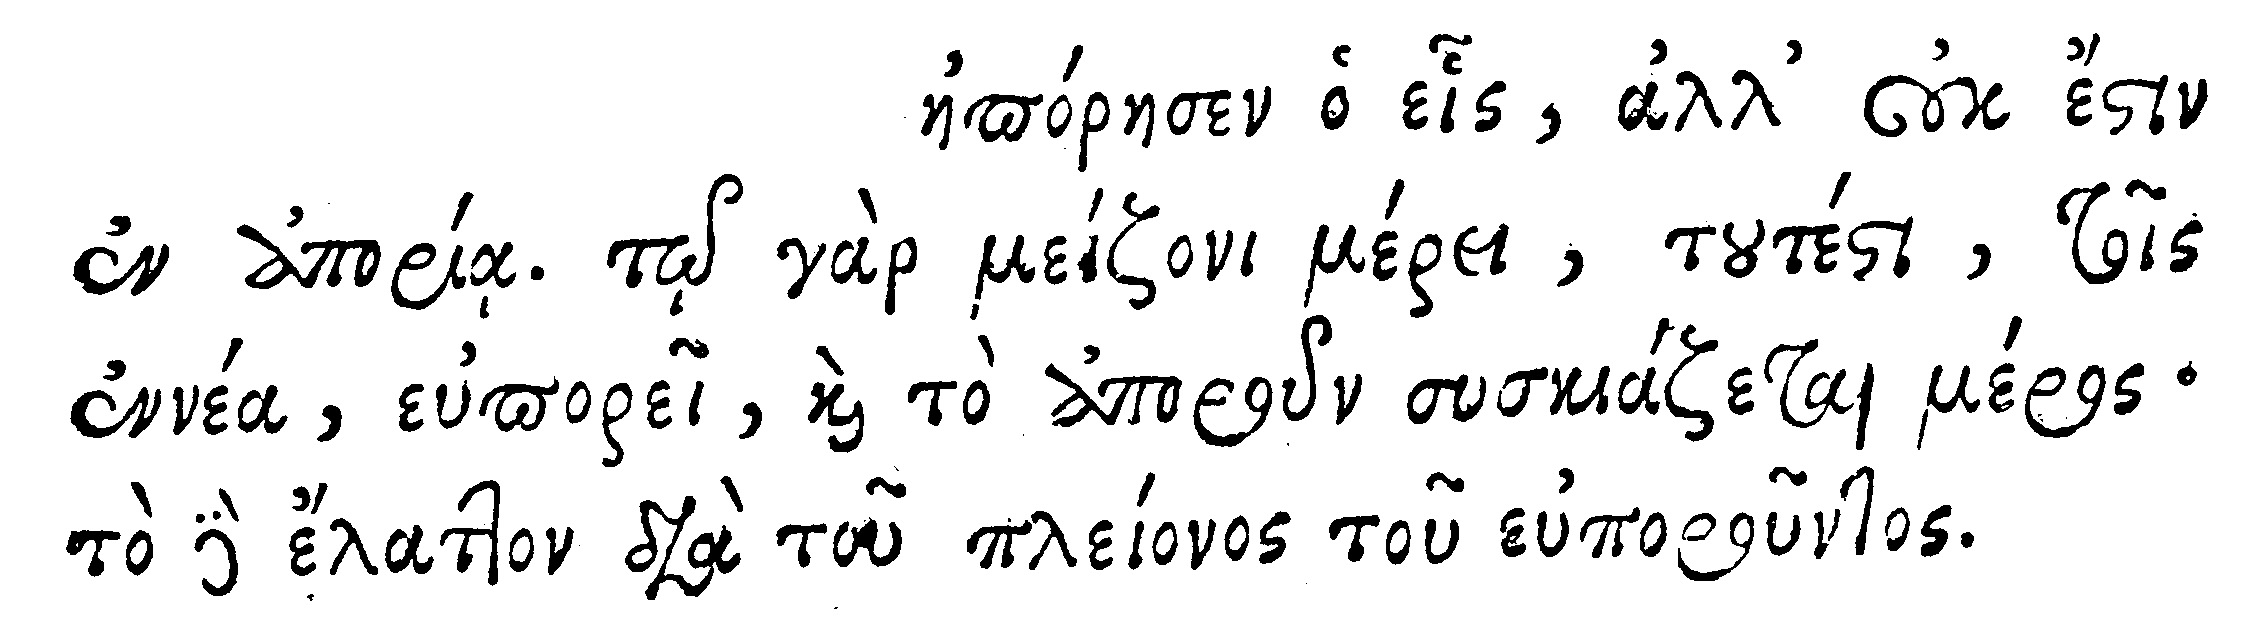 ἠπόρησεν ὁ εἷς, ἀλλ’ οὐκ ἔστιν
ἐν ἀπορίᾳ. τῷ γὰρ μείζονι μέρει, τουτέστι, τοῖς
ἐννέα, εὐπορεῖ, καὶ τὸ ἀποροῦν συσκιάζεται μέρος·
τὸ γὰρ ἔλαττον διὰ τοῦ πλείονος τοῦ εὐποροῦντος.